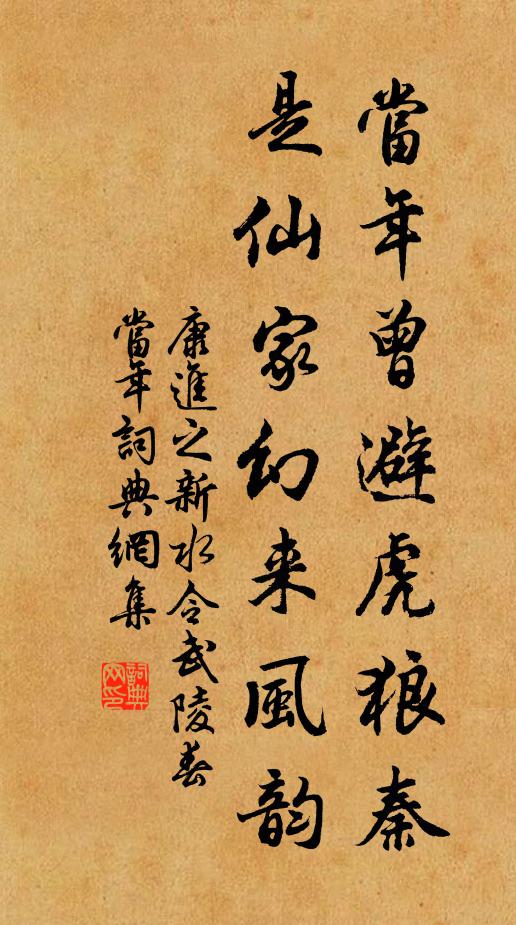 當年曾避虎狼秦
是仙家幻来風韵
康進之新水令武陵春
當年詞典網集
詞典網印